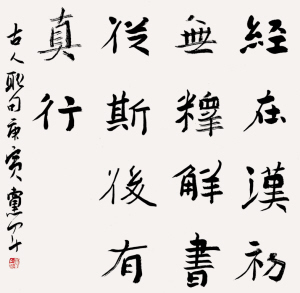 經在漢初
無釋解書
從斯後有
真行
古人句庚寅